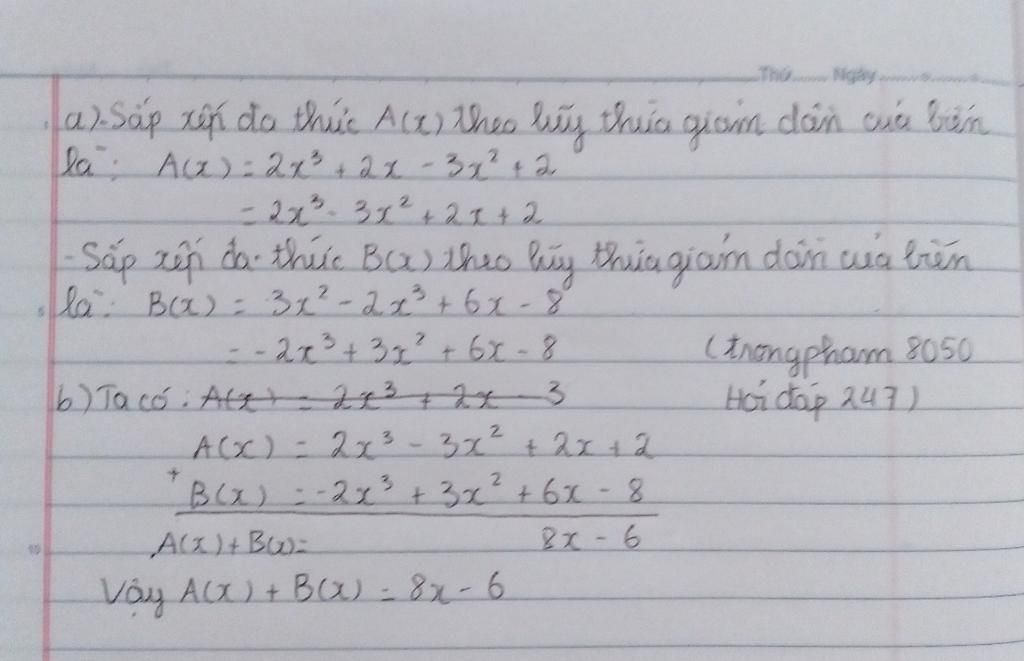 Thứ....... Ngày..........
a).Sắp xếp đa thức A(x) theo lũy thừa giảm dần của biến
là: A(x) = 2x³ + 2x - 3x² + 2
= 2x³ - 3x² + 2x + 2
-Sắp xếp đa thức B(x) theo lũy thừa giảm dần của biến
là: B(x) = 3x² - 2x³ + 6x - 8
= -2x³ + 3x² + 6x - 8 (trongpham 8050
b) Ta có: A(x) = 2x³ + 2x - 3 Hỏi đáp 247)
A(x) = 2x³ - 3x² + 2x + 2
+
B(x) = -2x³ + 3x² + 6x - 8
A(x) + B(x) = 8x - 6
Vậy A(x) + B(x) = 8x - 6